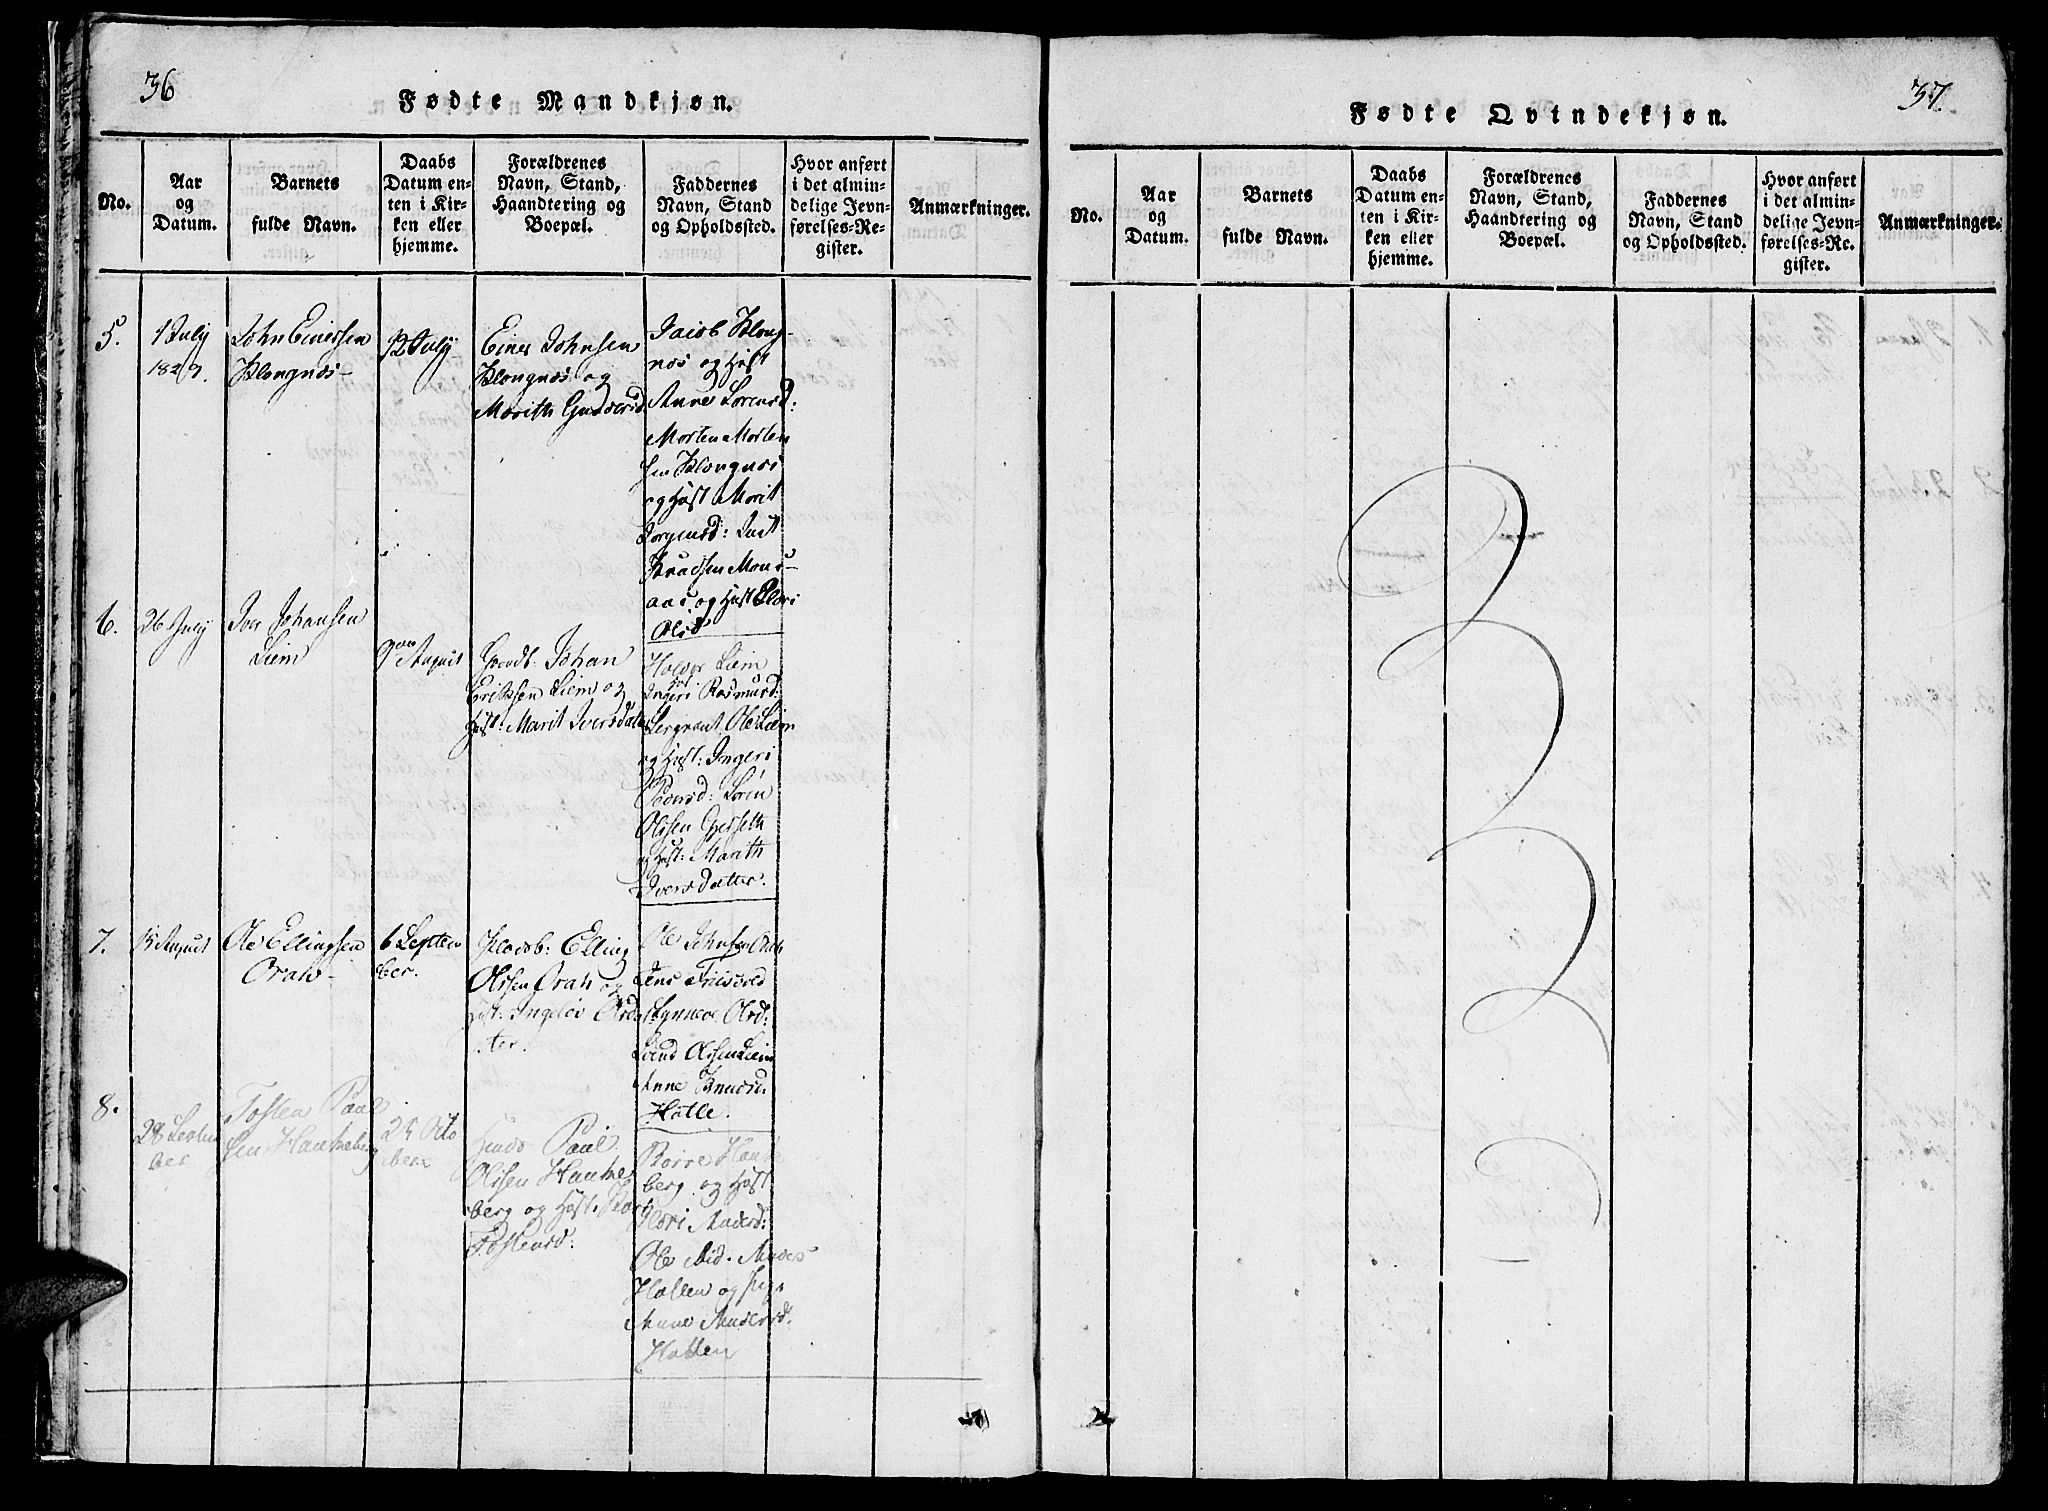 36
Fødte Mandkjøn.
No.
Aar
og
Datum.
Barnets
fulde Navn.
Daabs
Datum en-
ten i Kir-
ken eller
hjemme.
Forældrenes
Navn, Stand,
Haandtering og
Boepæl.
Faddernes
Navn, Stand
og Opholdssted.
Hvor anført
i det almin-
delige Jevn-
førelses-Re-
gister.
Anmærkninger.
5.
1 July
1827.
John Einersen
Klongnæs
12 July
Einer Johnsen
Klongnæs og
Marith Gunders
Jacob Klong-
næs og Hust
Anne Lorensd:
Morten Morten
sen Klongnæs
og Hust Marit
Jorgensd:
Knudsen
og Hust
Olsd
6.
26 July
Iver Johansen
Liem
9 August
Gaardb: Johan
Eriksen Liem og
Hust: Marit Iversdatter
Halvor Liem
Ingeri Rasmusd:
Sergeant Ole Liem
og Hust: Ingeri
Pedersd: Søren
Olssen Gjerseth
og Hust: Marith
Iversdatter.
7.
15 August
Ole Ellingsen
Orah
6 Septem
ber.
Elling
Olssen Orah og
Hust: Olsd
ter.
Ole Johnsen Orah
Jens Friisvold
Synneve Olsd:
Olssen Liem
Anne Knudsd.
Hatle.
8.
28 Septem
ber
Tosten Paal
sen Haukeberg
25 Octo
ber
Paal
Olssen Hauke
berg og Hust. Kari
Tostensd:
Børre Hauke
berg og Hust
Kari Andersd:
Ole Anders
Hatlen og
Anne Andersd.
Hatlen
37.
Fødte Qvindekjøn.
No.
Aar
og
Datum.
Barnets
fulde Navn.
Daabs
Datum en-
ten i Kir-
ken eller
hjemme.
Forældrenes
Navn, Stand,
Haandtering og
Boepæl.
Faddernes
Navn, Stand
og Opholdssted.
Hvor anført
i det almin-
delige Jevn-
førelses-Re-
gister.
Anmærkninger.